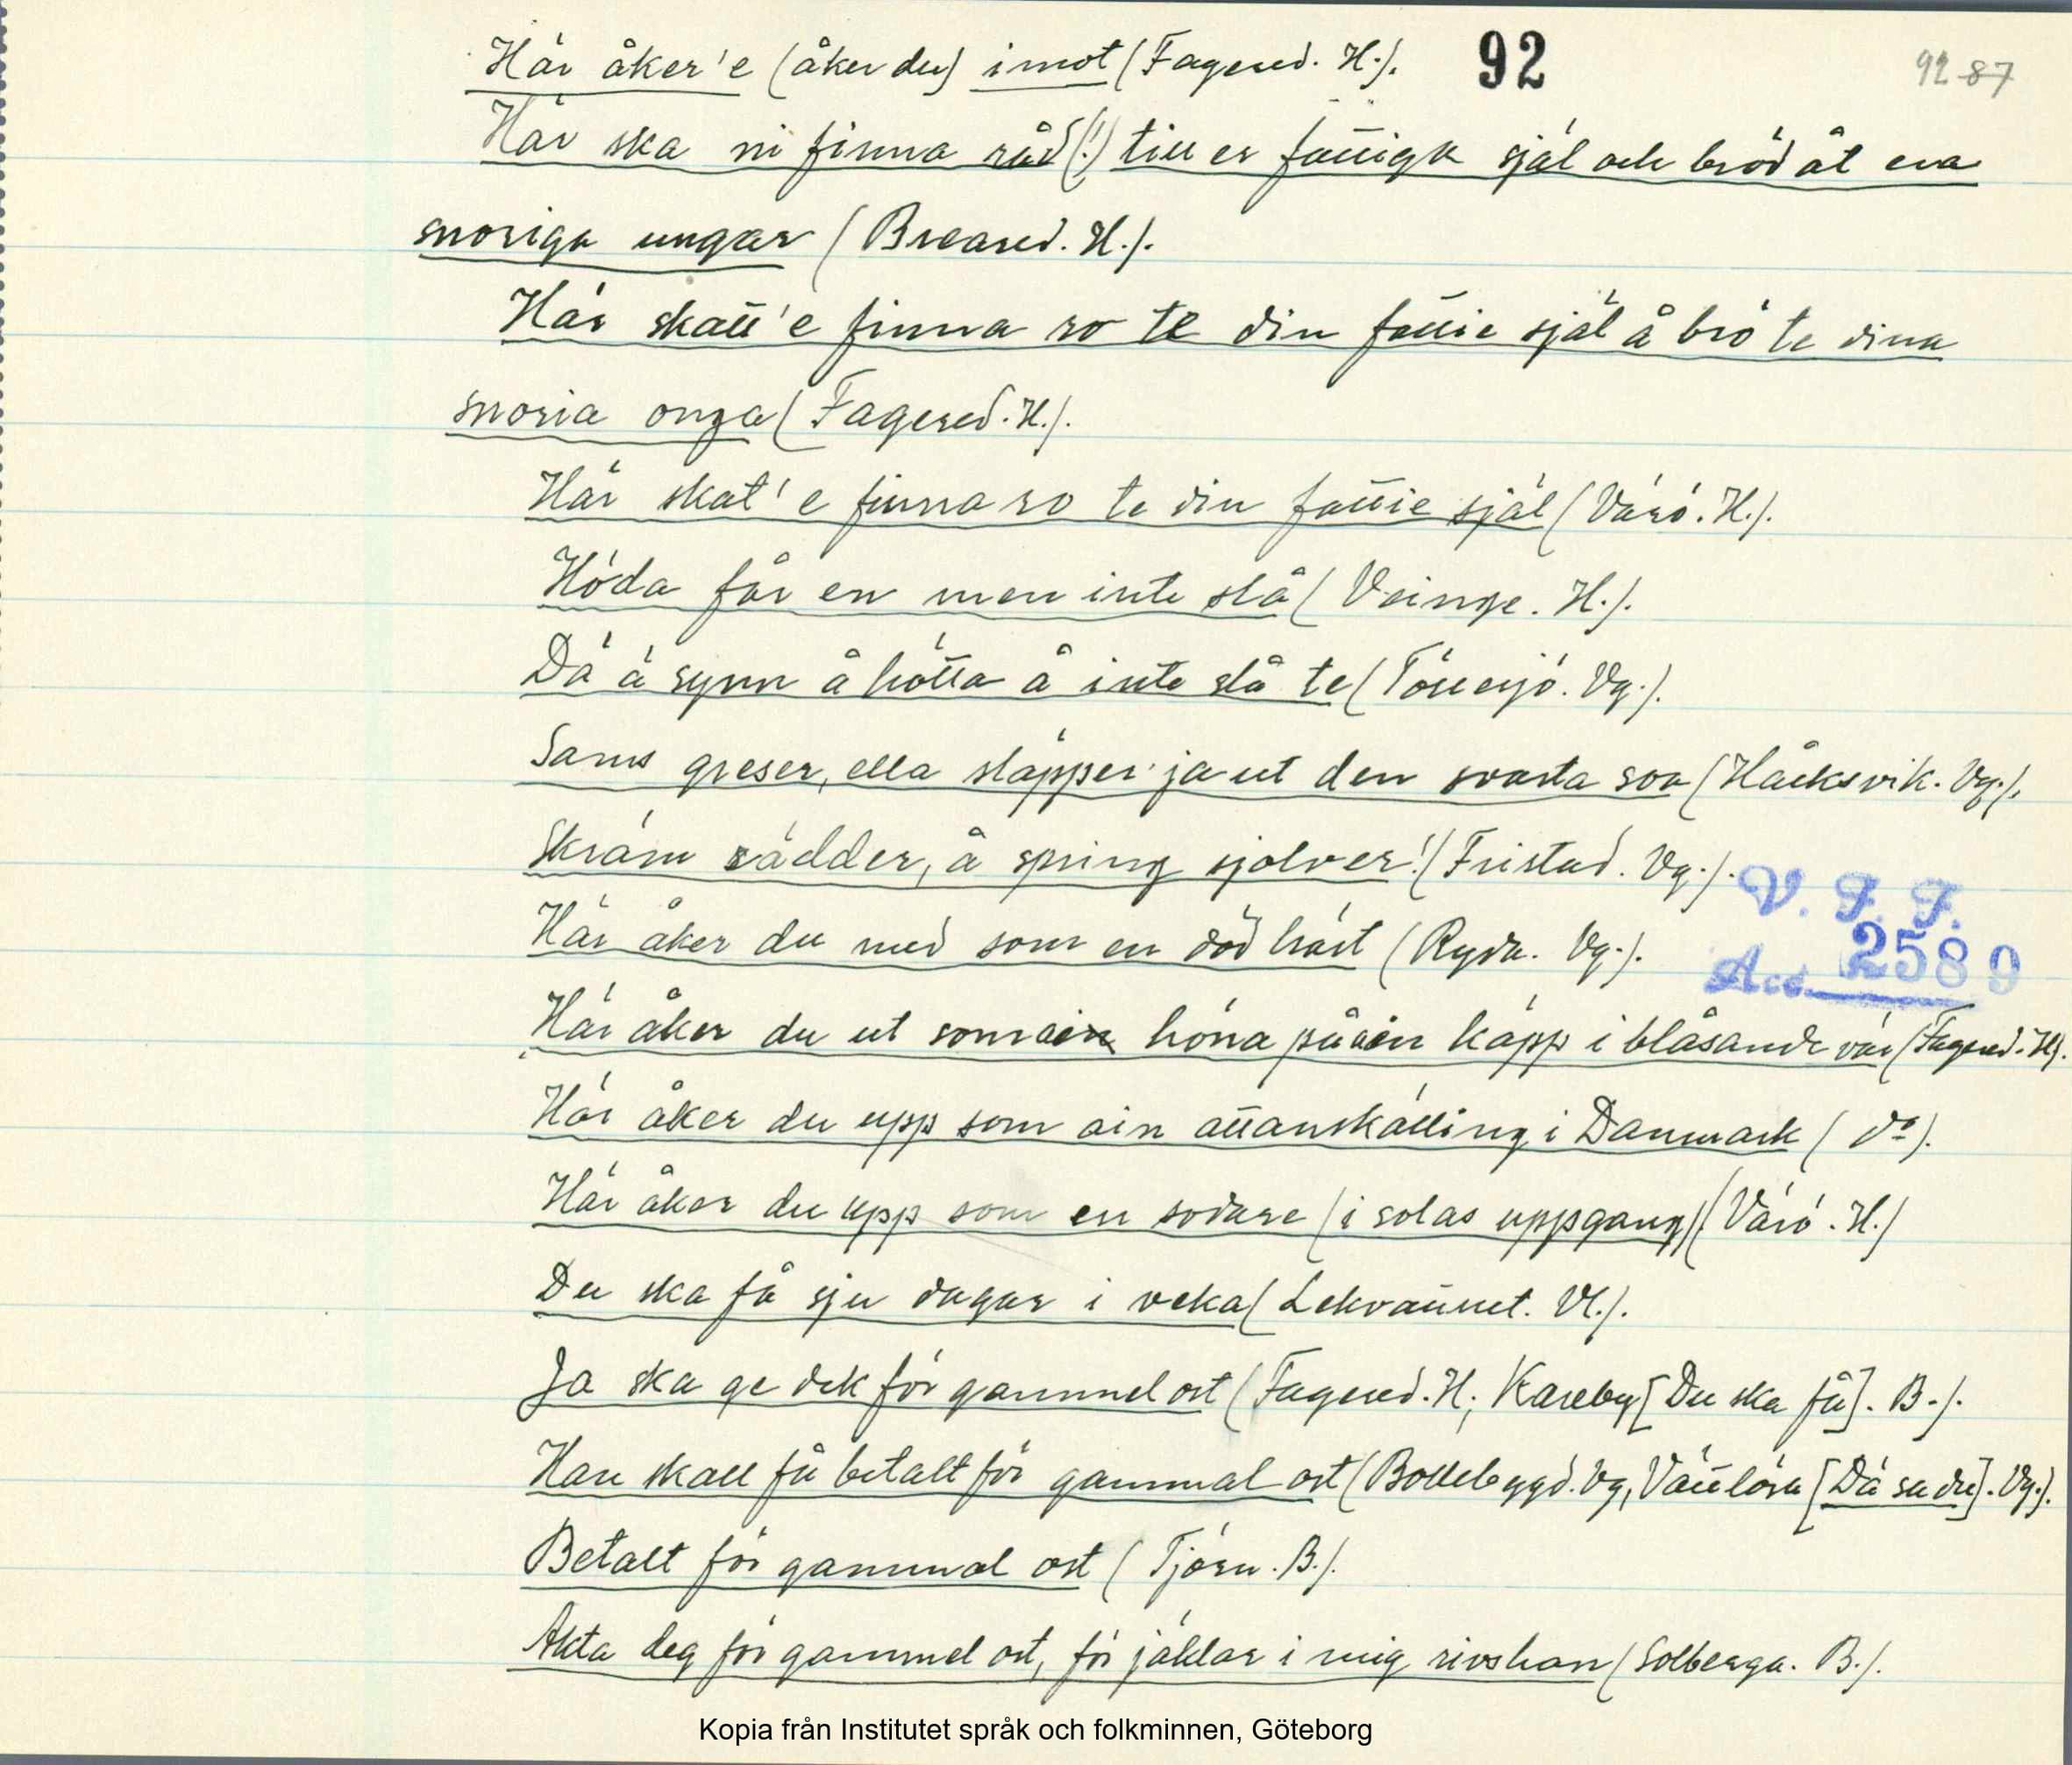 Här åker'e (åker du) imot (Fagered. H.). 92 92 87
Här ska ni finna råd(!) till er fattiga själ och bröd åt era
snoriga ungar (Breared. H.).
Här skall'e finna ro te din fattie själ å brö te dina
snoria onga (Fagered. H.).
Här skat'e finna ro te din fattie själ (Värö. H.).
Höda får en men inte slå (Veinge. H.).
Dä ä synn å hötta å inte slå te (Tönnersjö. Vg.).
Sams greser, ella släpper ja ut den svarta soa (Håcksvik. Vg.).
Skräm rädder, å spring sjolver! (Fristad. Vg.).
V. F. F.
Här åker du med som en död häst (Ryda. Vg.).
Acc. 2589
Här åker du ut som ain höna på ain käpp i blåsande vär (Fagered. H).
Här åker du upp som ain attanskälling i Danmark (do).
Här åker du upp som en sodare (i solas uppgang) (Värö. H.)
Du ska få sju dagar i veka (Lekvattnet. Vl.).
Ja ska ge dek för gammel ost (Fagered. H; Kareby [Du ska få]. B.).
Han skall få betalt för gammal ost (Bollebygd. Vg, Vättlösa [Dä sa du]. Vg.).
Betalt för gammal ost (Tjörn. B.).
Akta deg för gammel ost, för jäklar i mig rivshan (Solberga. B.).
Kopia från Institutet språk och folkminnen, Göteborg